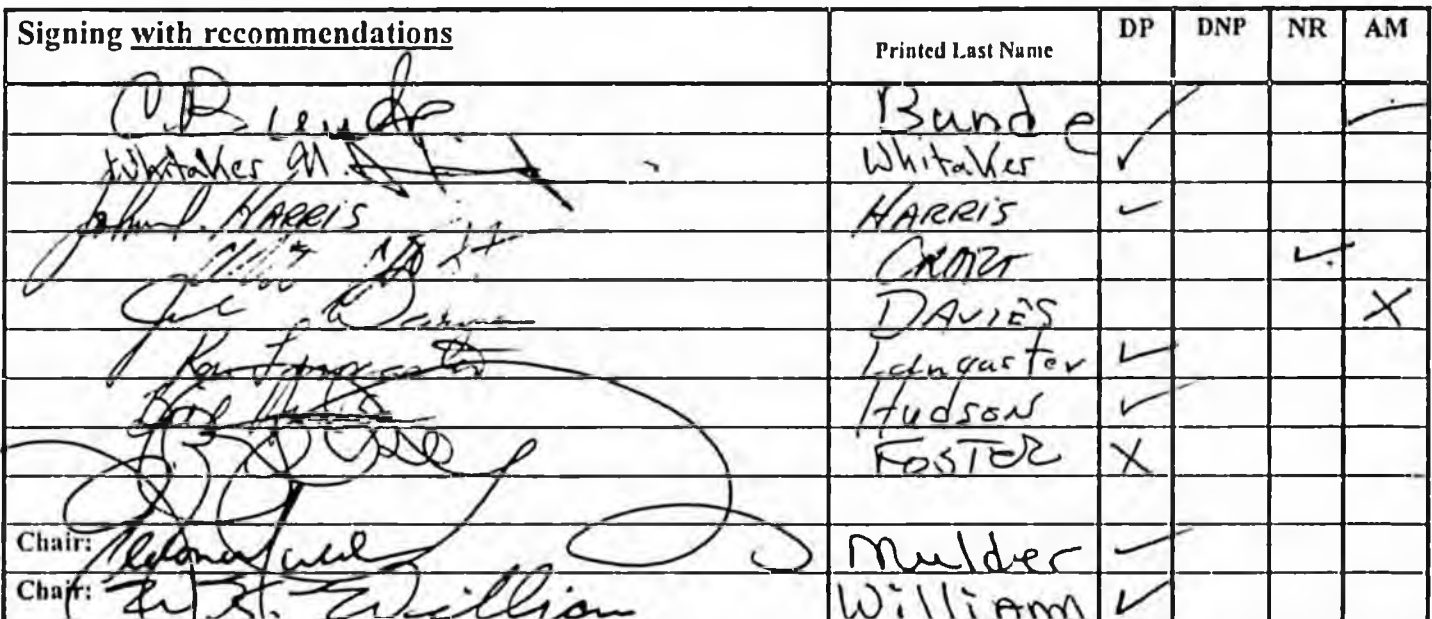 Signing with recommendations Printed Last Name DP DNP NR AM
C. Bunde Bunde ✓ ✓
Whitaker M. Whitaker ✓
John L. HARRIS HARRIS ✓
✓
DAVIES X
Ken Lancaster Lancaster ✓
Hudson ✓
FOSTER X
Chair: Mulder ✓
Chair: William William ✓